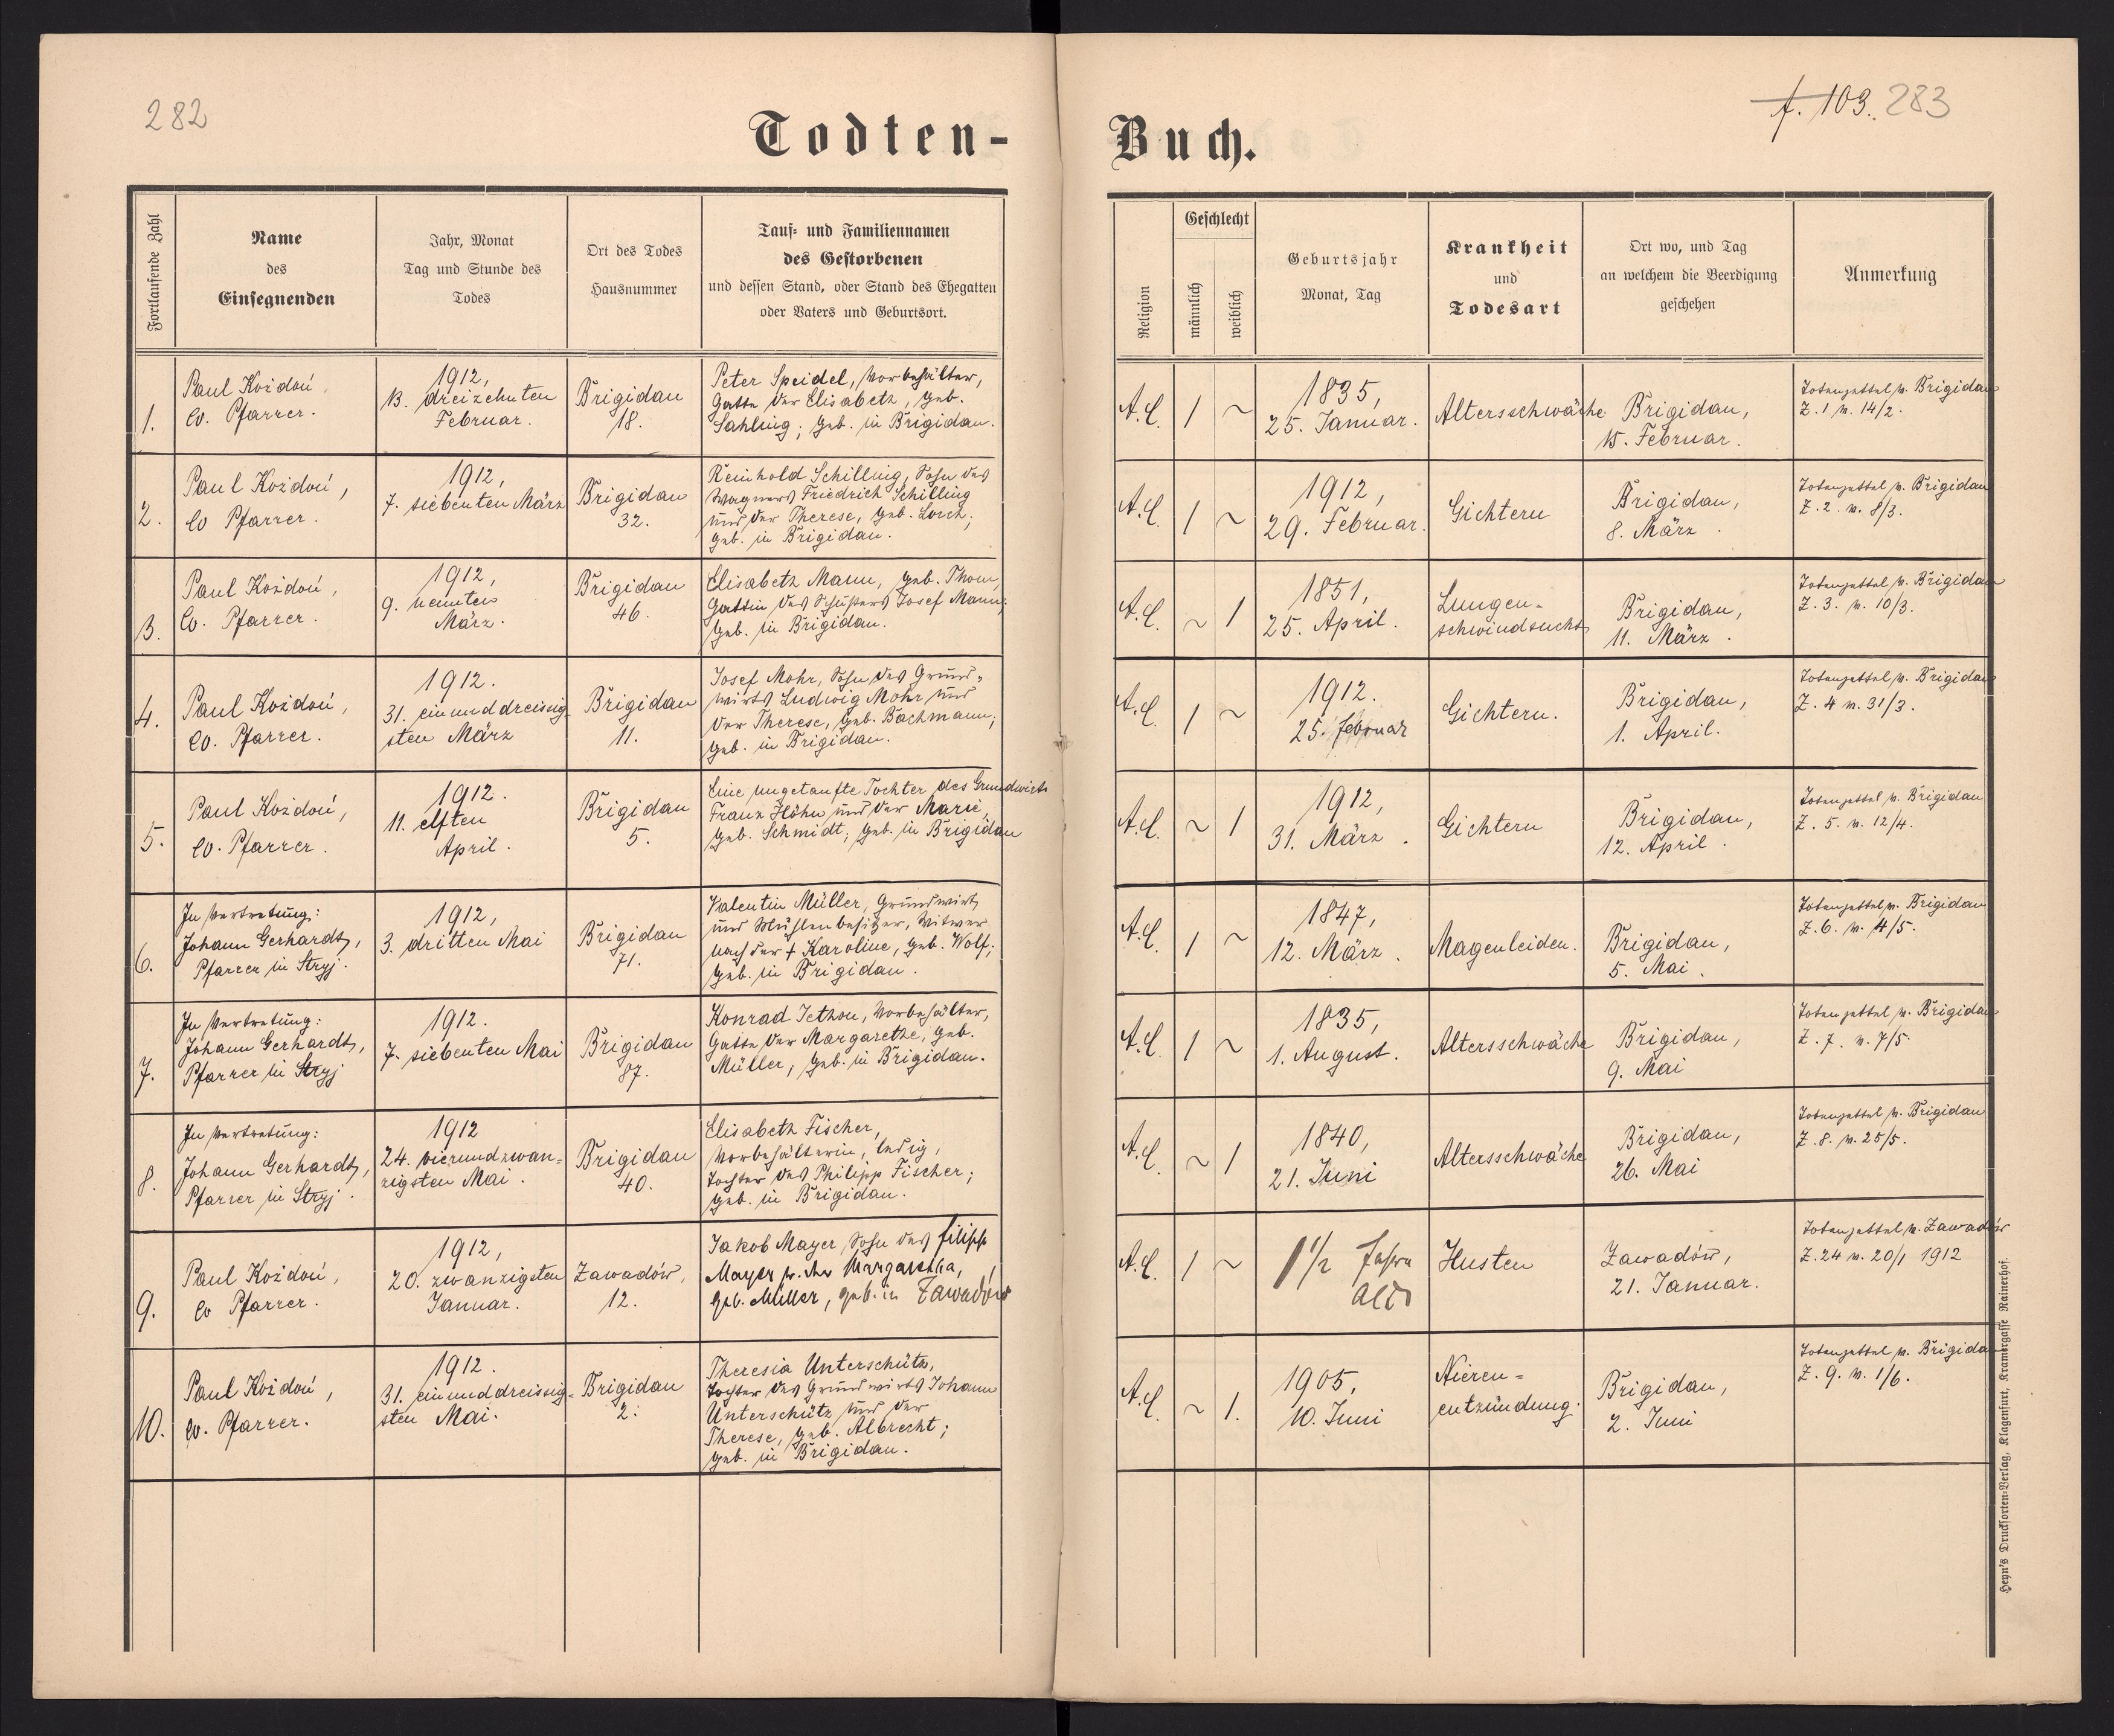 282
f. 103. 283
Todten-Buch.
Fortlaufende Zahl
Name
des
Einsegnenden
Jahr, Monat
Tag und Stunde des
Todes
Ort des Todes
Hausnummer
Tauf- und Familiennamen
des Gestorbenen
und dessen Stand, oder Stand des Ehegatten
oder Vaters und Geburtsort.
Religion
Geschlecht
männlich
weiblich
Geburtsjahr
Monat, Tag
Krankheit
und
Todesart
Ort wo, und Tag
an welchem die Beerdigung
geschehen
Anmerkung
1.
Paul Kożdoń,
ev. Pfarrer.
1912,
13. dreizehnten
Februar.
Brigidau
18.
Peter Speidel, Vorbehälter,
Gatte der Elisabeth, geb.
Sahling; geb. in Brigidau.
A.C.
1 ~
1835,
25. Januar.
Altersschwäche
Brigidau,
15. Februar.
Totenzettel v. Brigidau
Z. 1 v. 14/2.
2.
Paul Kożdoń,
ev Pfarrer.
1912,
7. siebenten März
Brigidau
32.
Reinhold Schilling, Sohn des
Wagners Friedrich Schilling
und der Therese, geb. Lorch.;
geb. in Brigidau.
A.C.
1 ~
1912,
29. Februar.
Gichtern
Brigidau,
8. März.
Totenzettel v. Brigidau
Z. 2. v. 8/3.
3.
Paul Kożdoń,
Ev. Pfarrer.
1912,
9. neunten
März.
Brigidau
46.
Elisabeth Mann, geb. Thom,
Gattin des Schusters Josef Mann;
geb. in Brigidau.
A.C.
~ 1
1851,
25. April.
Lungen-
schwindsucht
Brigidau,
11. März.
Totenzettel v. Brigidau
Z. 3. v. 10/3.
4.
Paul Kożdoń,
ev. Pfarrer.
1912.
31. einunddreissig-
sten März
Brigidau
11.
Josef Mohr, Sohn des Grund-
wirts Ludwig Mohr und
der Therese, geb. Bachmann;
geb. in Brigidau.
A.C.
1 ~
1912.
25. Februar
Gichtern.
Brigidau,
1. April.
Totenzettel v. Brigidau
Z. 4 v. 31/3.
5.
Paul Kożdoń,
ev. Pfarrer.
1912.
11. elften
April.
Brigidau
5.
Eine ungetaufte Tochter des Grundwirts
Franz Höhn und der Marie,
geb. Schmidt; geb. in Brigidau
A.C.
~ 1
1912,
31. März.
Gichtern
Brigidau,
12. April.
Totenzettel v. Brigidau
Z. 5. v. 12/4.
6.
In Vertretung:
Johann Gerhardt,
Pfarrer in Stryj.
1912,
3. dritten Mai
Brigidau
71.
Valentin Müller, Grundwirt
und Mühlenbesitzer, Witwer
nach der † Karoline, geb. Wolf;
geb. in Brigidau.
A.C.
1 ~
1847,
12. März.
Magenleiden.
Brigidau,
5. Mai.
Totenzettel v. Brigidau
Z. 6. v. 4/5.
7.
In Vertretung:
Johann Gerhardt,
Pfarrer in Stryj
1912.
7. siebenten Mai
Brigidau
87.
Konrad Jethon, Vorbehälter,
Gatte der Margarethe, geb.
Müller; geb. in Brigidau.
A.C.
1 ~
1835,
1. August.
Altersschwäche
Brigidau,
9. Mai
Totenzettel v. Brigidau
Z. 7. v. 7/5.
8.
In Vertretung:
Johann Gerhardt,
Pfarrer in Stryj.
1912
24. vierundzwan-
zigsten Mai.
Brigidau
40.
Elisabeth Fischer,
Vorbehälterin, ledig,
Tochter des Philipp Fischer;
geb. in Brigidau.
A.C.
~ 1
1840,
21. Juni
Altersschwäche
Brigidau,
26. Mai
Totenzettel v. Brigidau
Z. 8. v. 25/5.
9.
Paul Kożdoń,
ev Pfarrer.
1912,
20. zwanzigsten
Januar.
Zawadów,
12.
Jakob Mayer, Sohn des Filipp
Mayer u. der Margaretha,
geb. Müller, geb. in Zawadów
A.C.
1 ~
1 1/2 Jahre
alt
Husten
Zawadów,
21. Januar.
Totenzettel v. Zawadów
Z. 24 v. 20/1 1912
10.
Paul Kożdoń,
ev. Pfarrer.
1912.
31. einunddreissig-
sten Mai.
Brigidau
2.
Theresia Unterschütz,
Tochter des Grundwirts Johann
Unterschütz und der
Therese, geb. Albrecht;
geb. in Brigidau.
A.C.
~ 1.
1905,
10. Juni
Nieren-
entzündung.
Brigidau,
2. Juni
Totenzettel v. Brigidau
Z. 9. v. 1/6.
Heyn's Drucksorten-Verlag, Klagenfurt, Kramergasse Rainerhof.